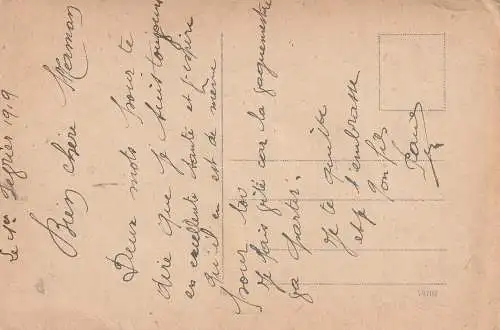 Le 1er Fegrier 1919
Bien chère Maman
Deux mots pour te
dire que je suis toujours
en excellente santé et j'espère
qu'il en est de même
pour toi
Je fais vite car le
va partir.
Je te quitte
et t'embrasse
Ton fils